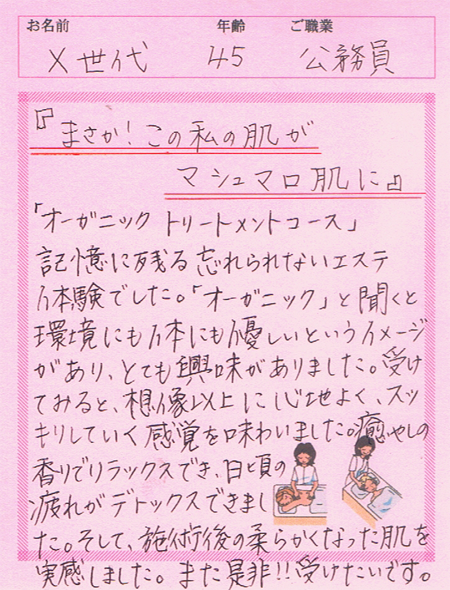 お名前 年齢 ご職業
X世代 45 公務員
『まさか!この私の肌が
マシュマロ肌に』
「オーガニック トリートメントコース」
記憶に残る忘れられないエステ
体験でした。「オーガニック」と聞くと
環境にも体にも優しいというイメージ
があり、とても興味がありました。受け
てみると、想像以上に心地よく、スッ
キリしていく感覚を味わいました。癒やしの
香りでリラックスでき、日頃の
疲れがデトックスできまし
た。そして、施術後の柔らかくなった肌を
実感しました。また是非!!受けたいです。